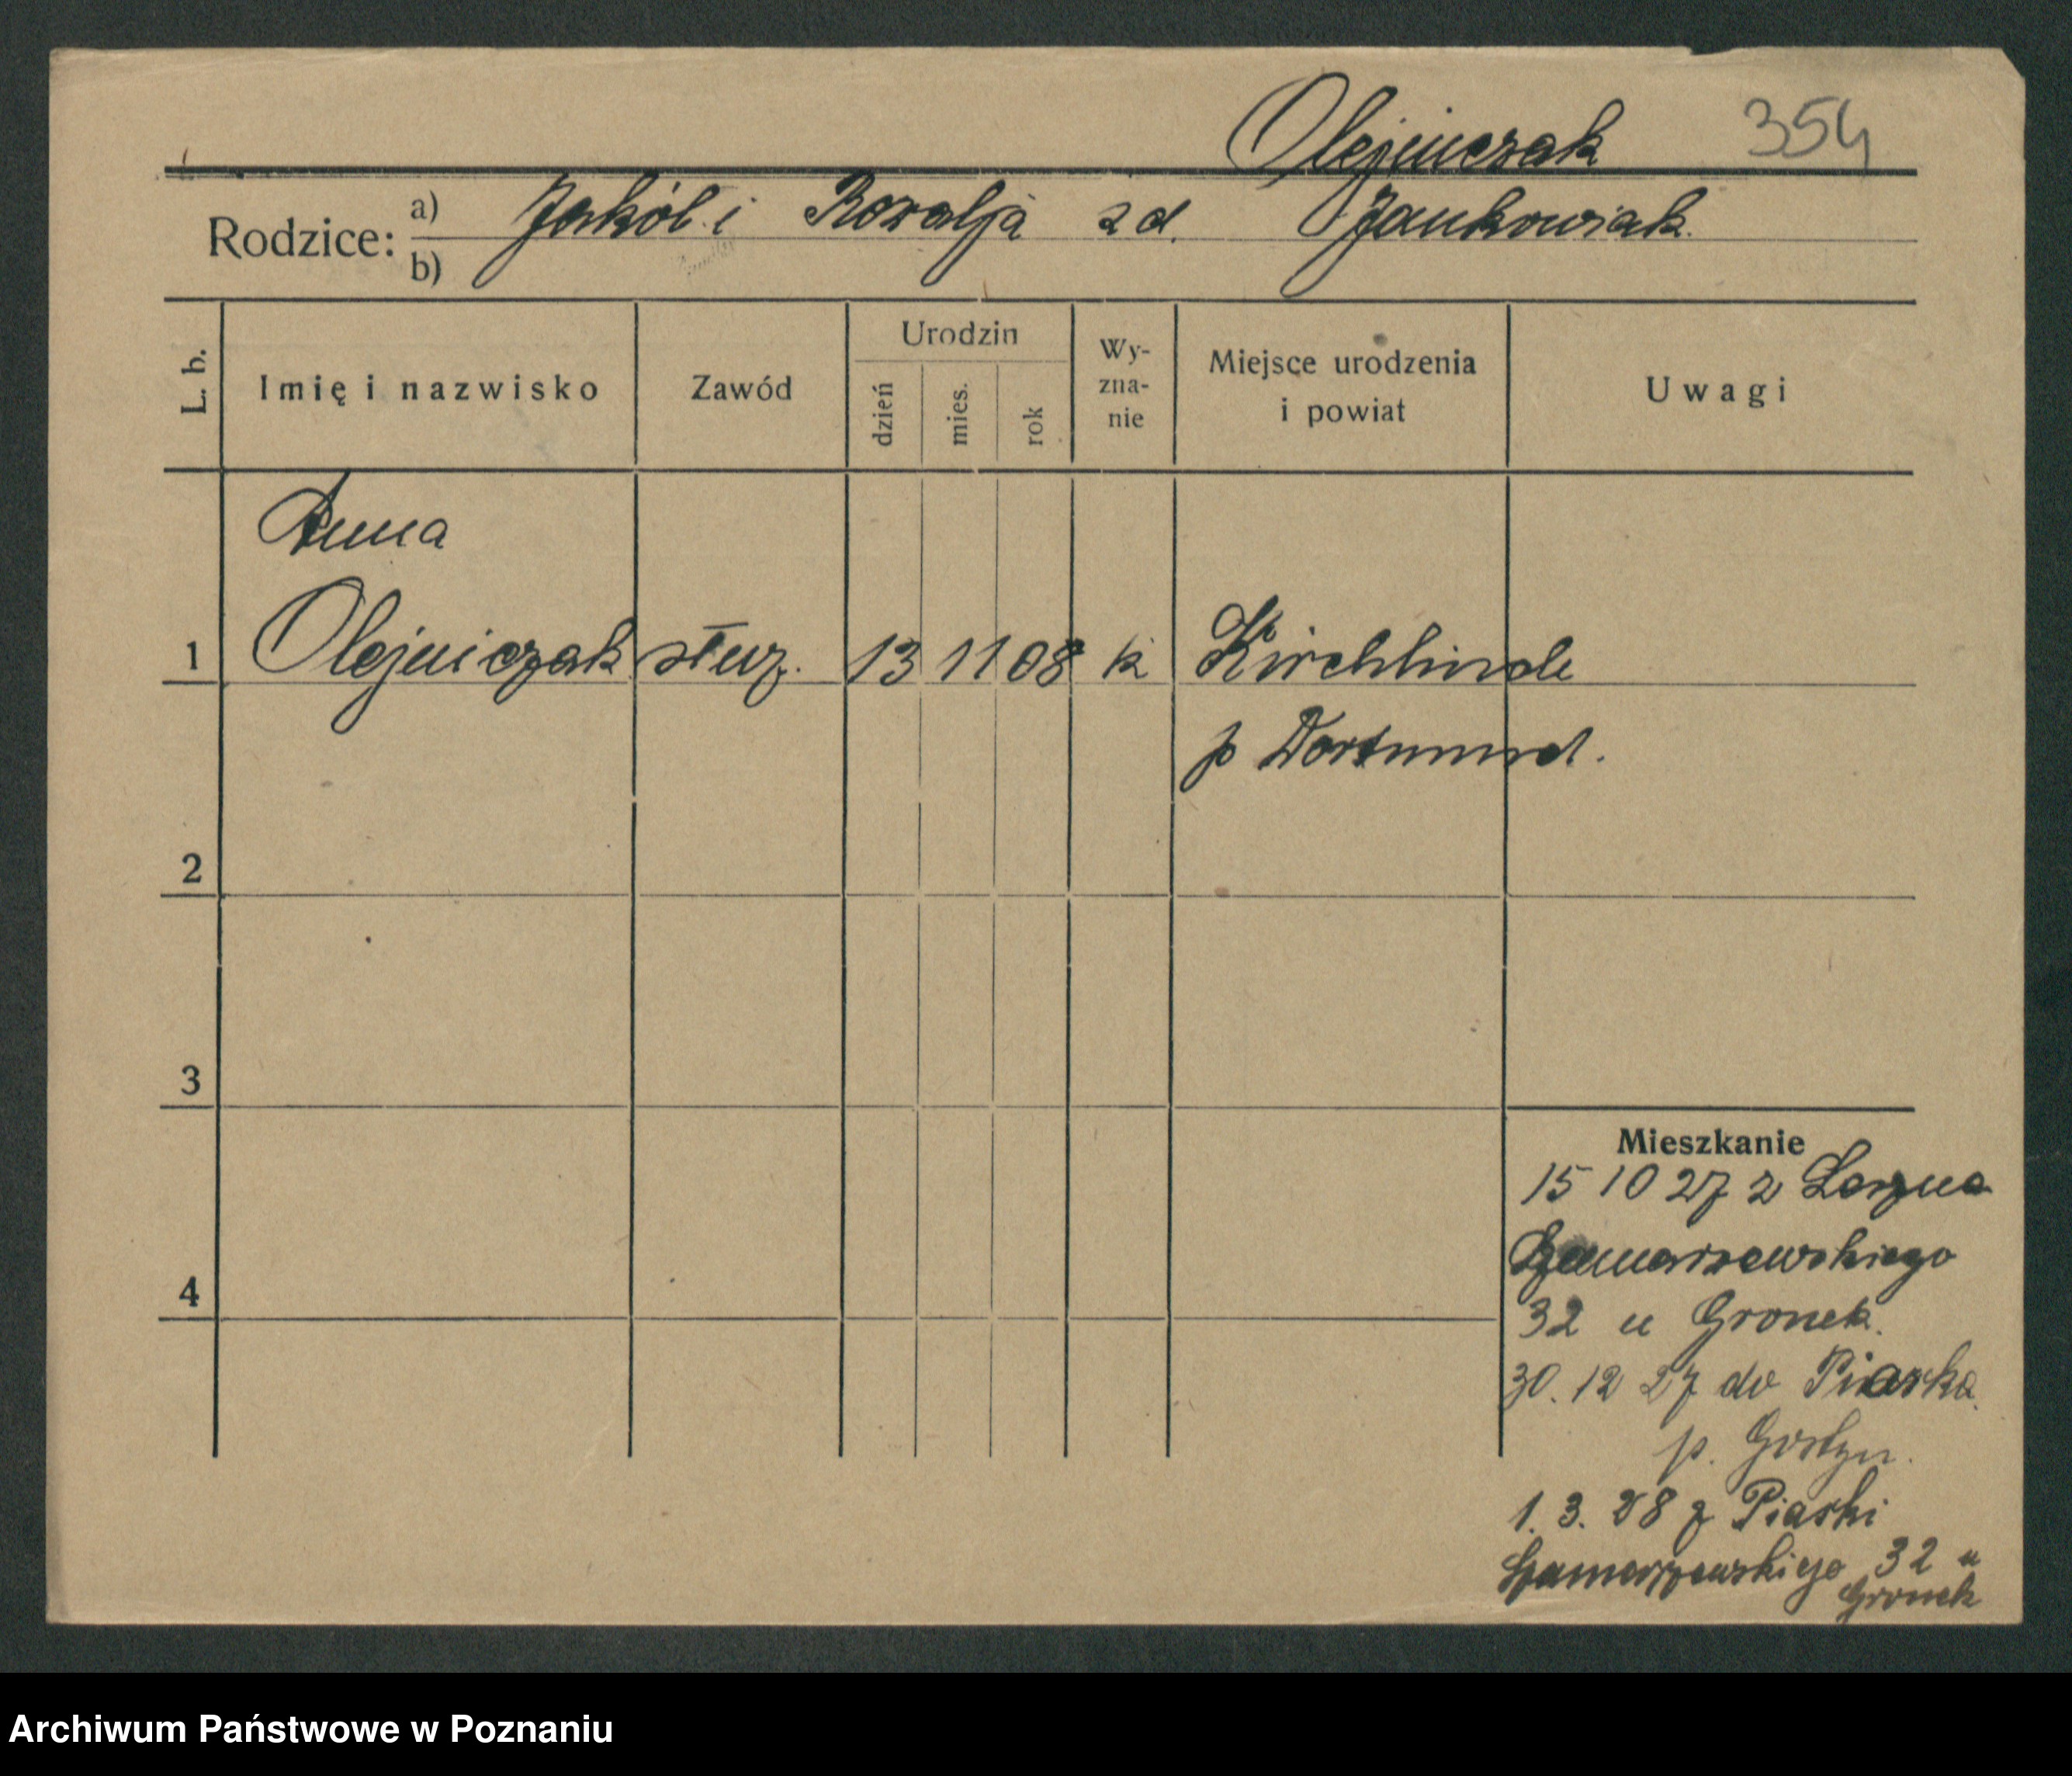 Olejniczak 354
Rodzice: a) Jakób i Rozalja zd. Jankowiak
b)
L. b.
Imię i nazwisko
Zawód
Urodzin
dzień
mies.
rok
Wy-
zna-
nie
Miejsce urodzenia
i powiat
Uwagi
Anna
1 Olejniczak służ. 13 11 08 k Kirchlinde
p Dortmund.
2
3
4
Mieszkanie
15 10 27 z
Szamarzewskiego
32 u Gronek.
30. 12 27 do Piaska
p. Gostyn.
1. 3. 28 z Piaski
Szamarzewskiego 32 u
Gronek
Archiwum Państwowe w Poznaniu